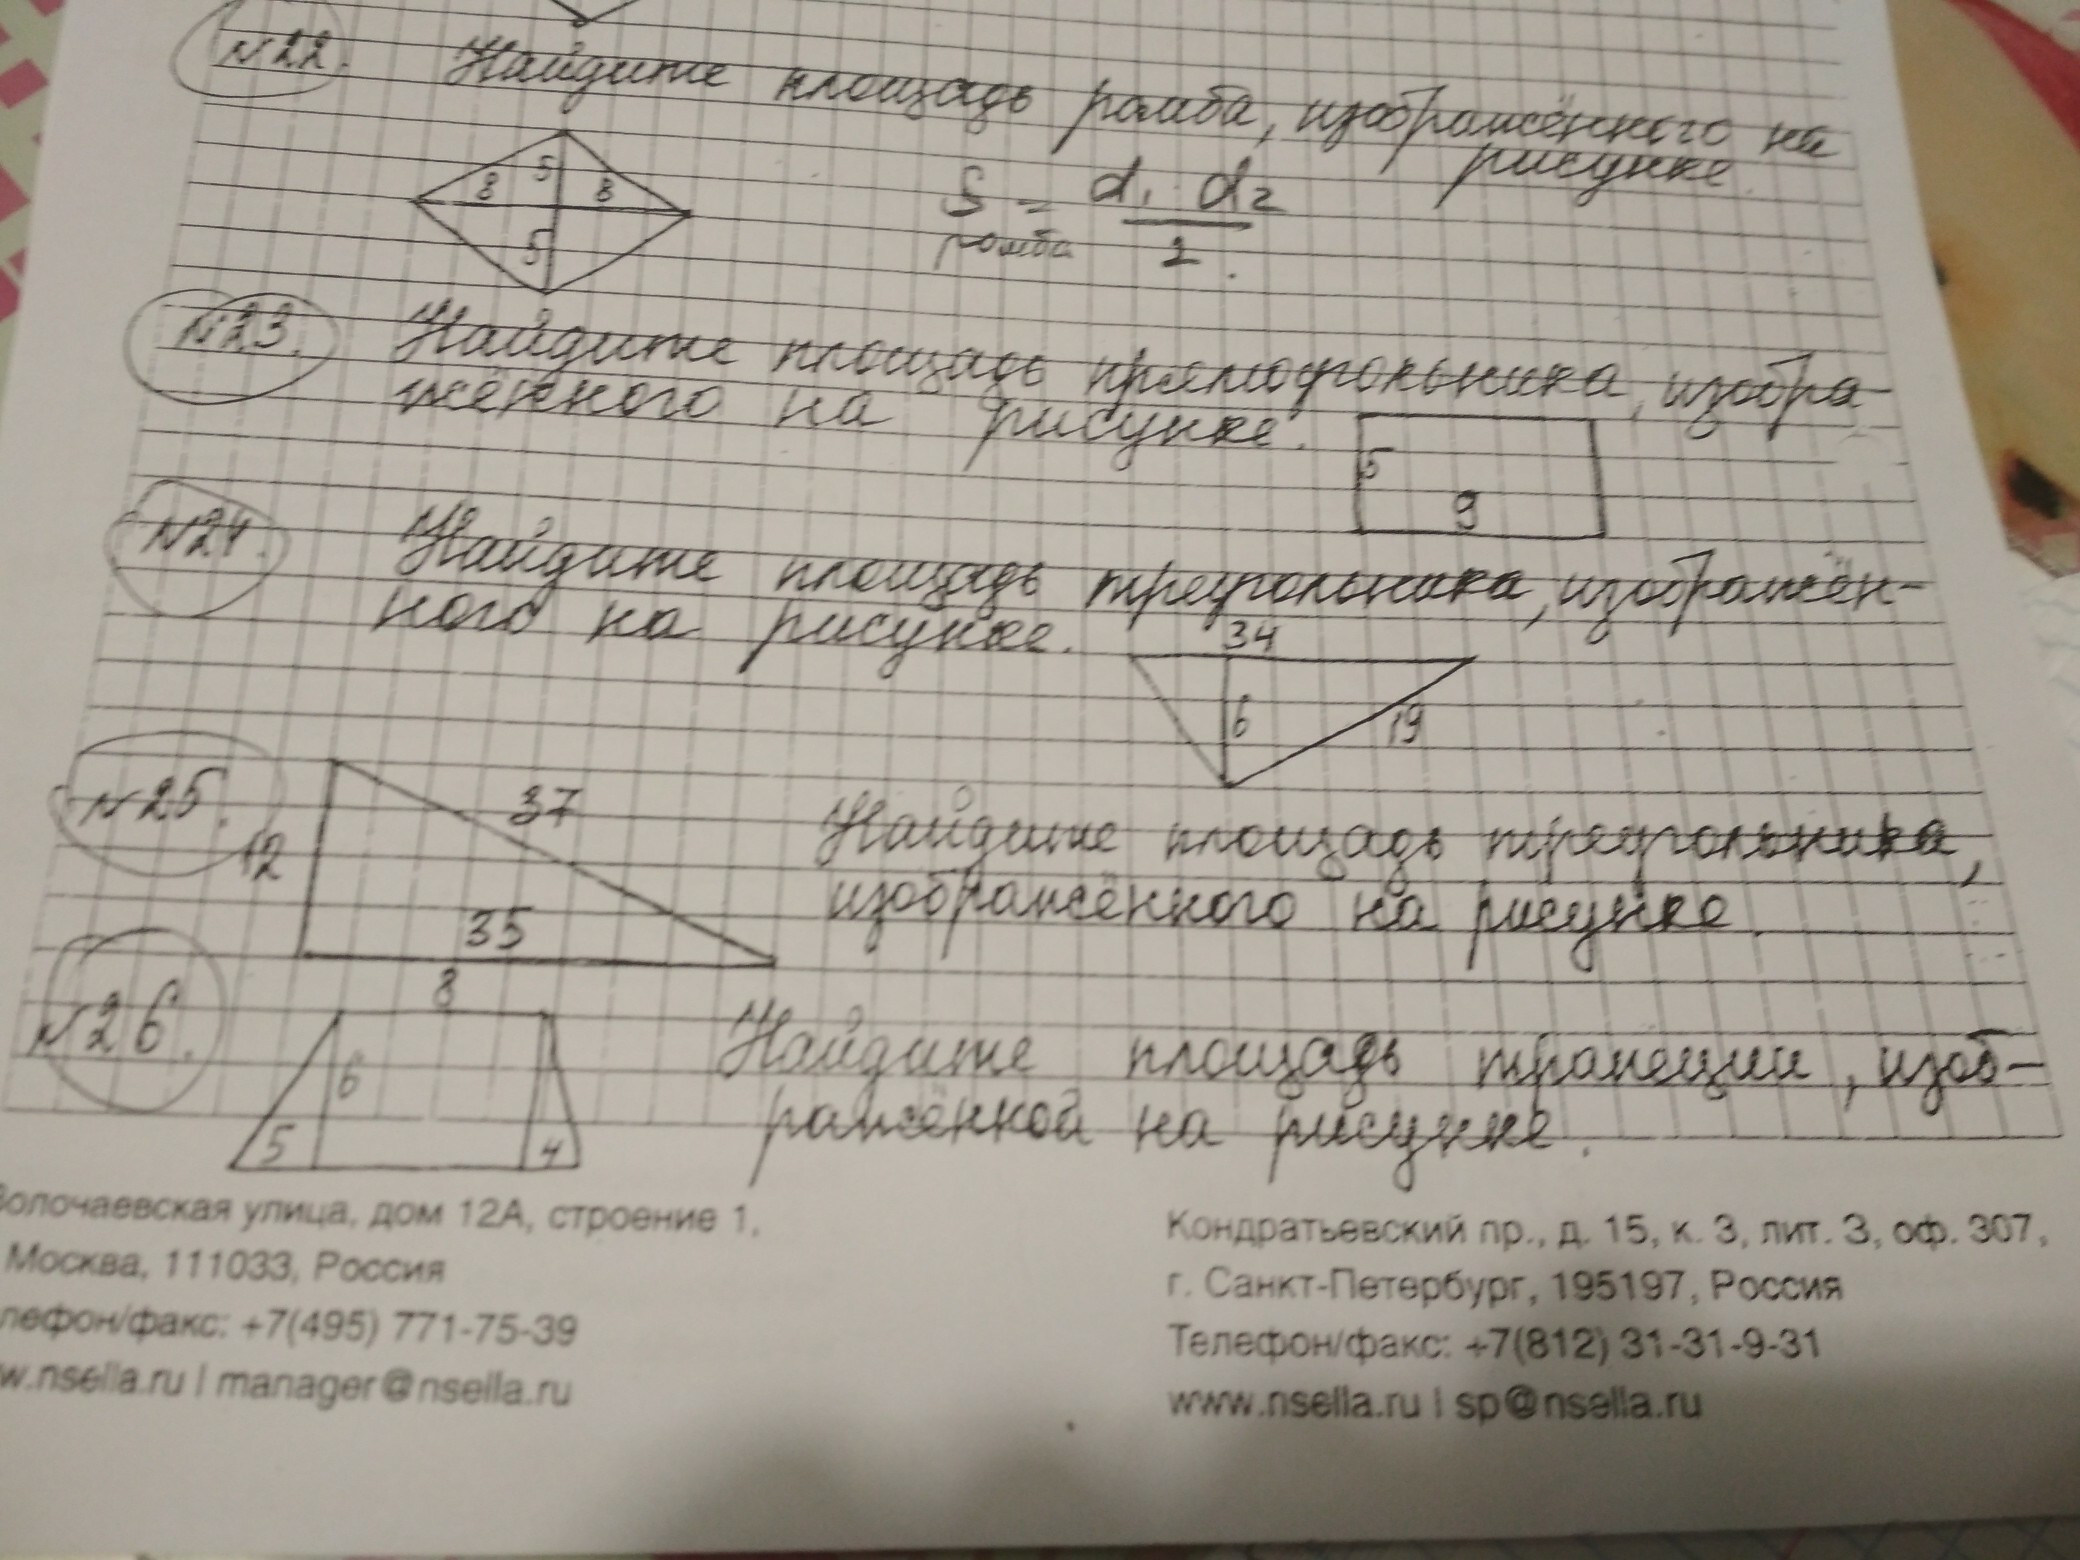 №22. Найдите площадь ромба, изображённого на
рисунке.
5
8 8
5
S = d₁ · d₂
ромба 2.
№23. Найдите площадь прямоугольника, изобра-
жённого на рисунке.
5
9
№24. Найдите площадь треугольника, изображён-
ного на рисунке.
34
6
19
№25.
12
37
35
Найдите площадь треугольника,
изображённого на рисунке.
№26.
8
6
5 4
Найдите площадь трапеции, изоб-
ражённой на рисунке.
Волочаевская улица, дом 12А, строение 1,
Москва, 111033, Россия
лефон/факс: +7(495) 771-75-39
w.nsella.ru | manager@nsella.ru
Кондратьевский пр., д. 15, к. 3, лит. З, оф. 307,
г. Санкт-Петербург, 195197, Россия
Телефон/факс: +7(812) 31-31-9-31
www.nsella.ru | sp@nsella.ru